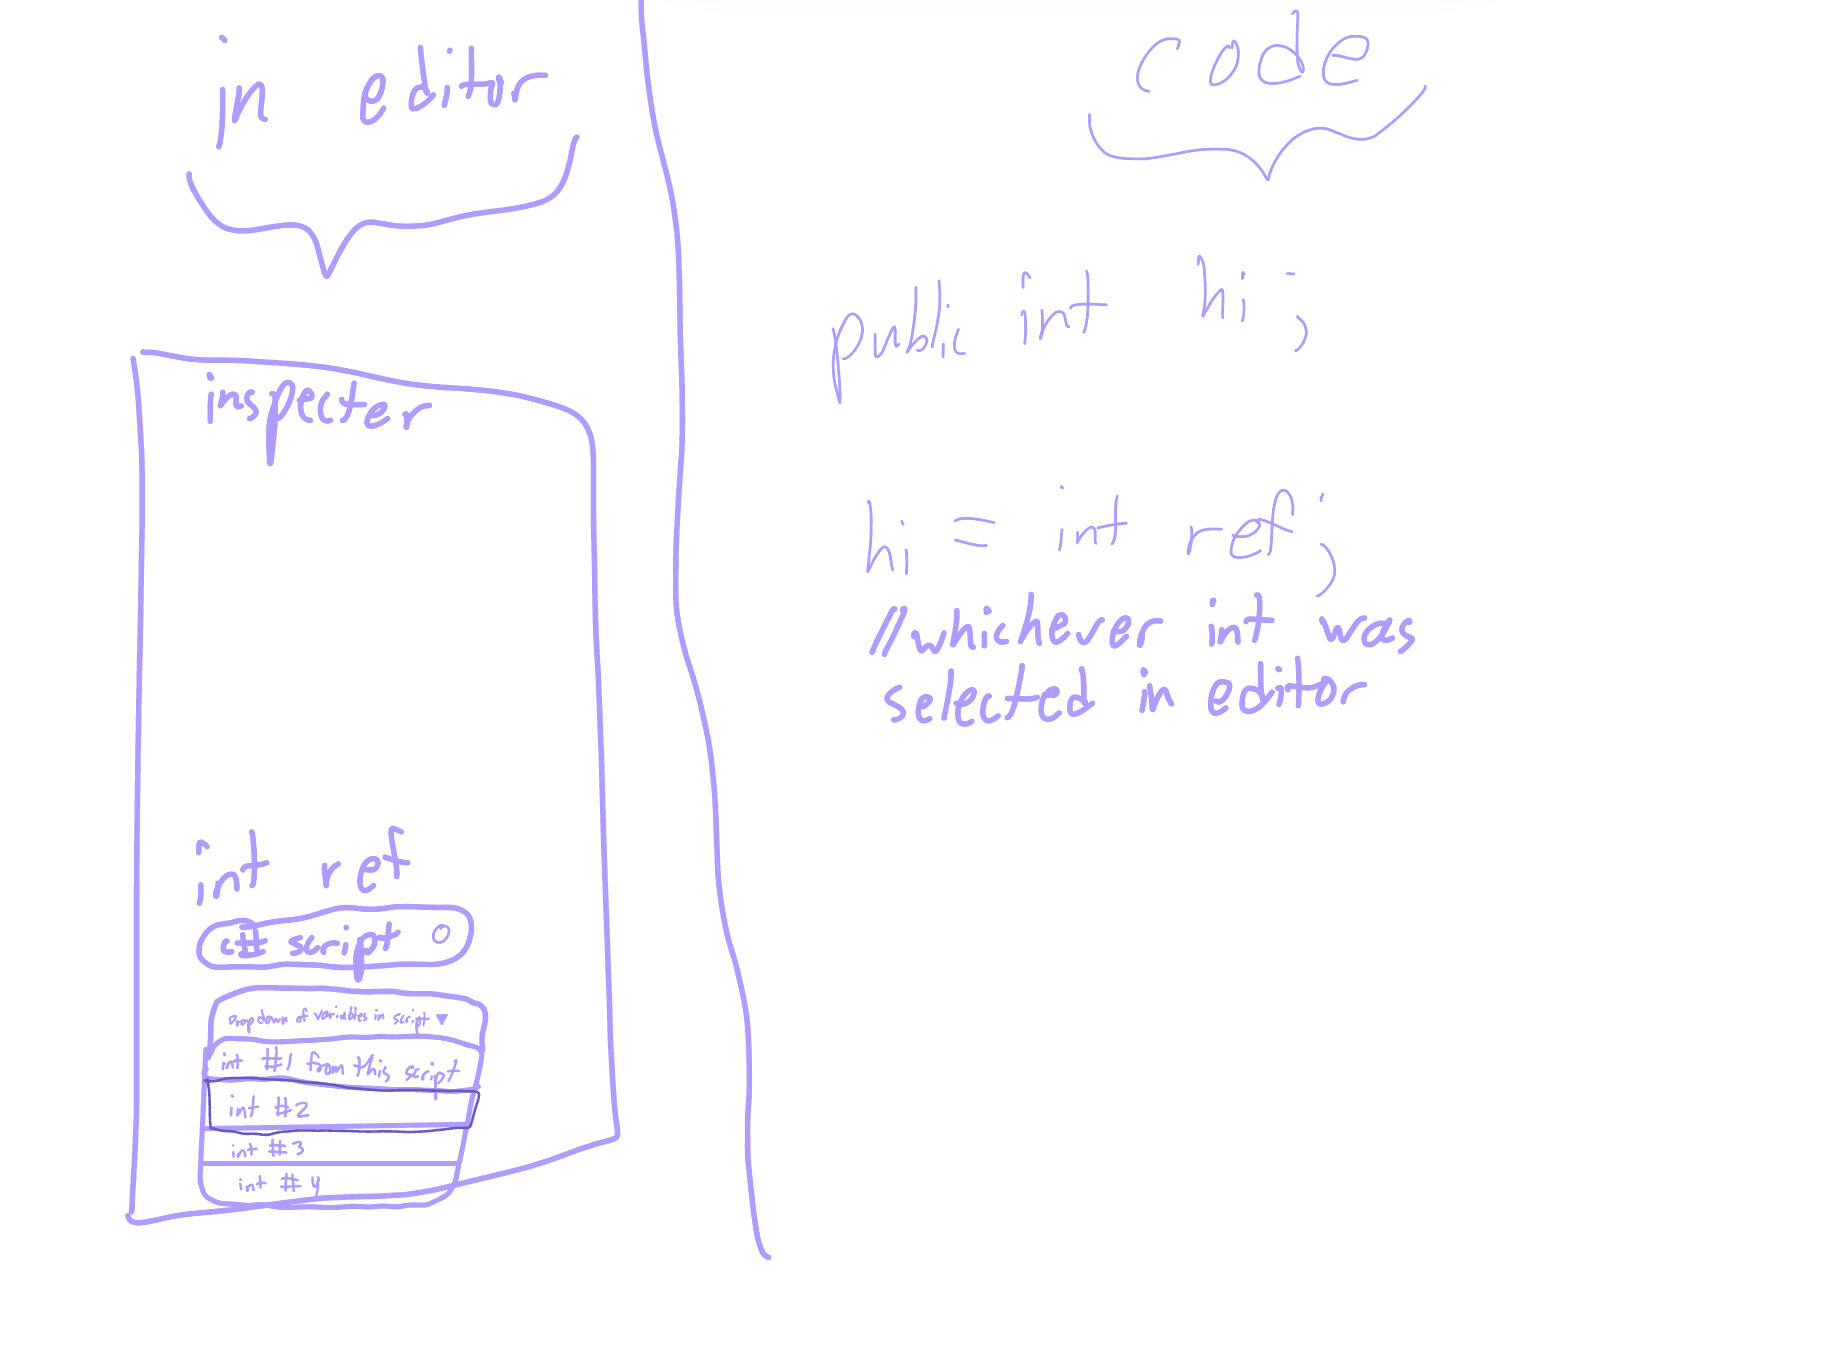 in editor
inspecter
int ref
c# script
Dropdown of variables in script
int #1 from this script
int #2
int #3
int #4
code
public int hi;
hi = int ref;
//whichever int was
selected in editor